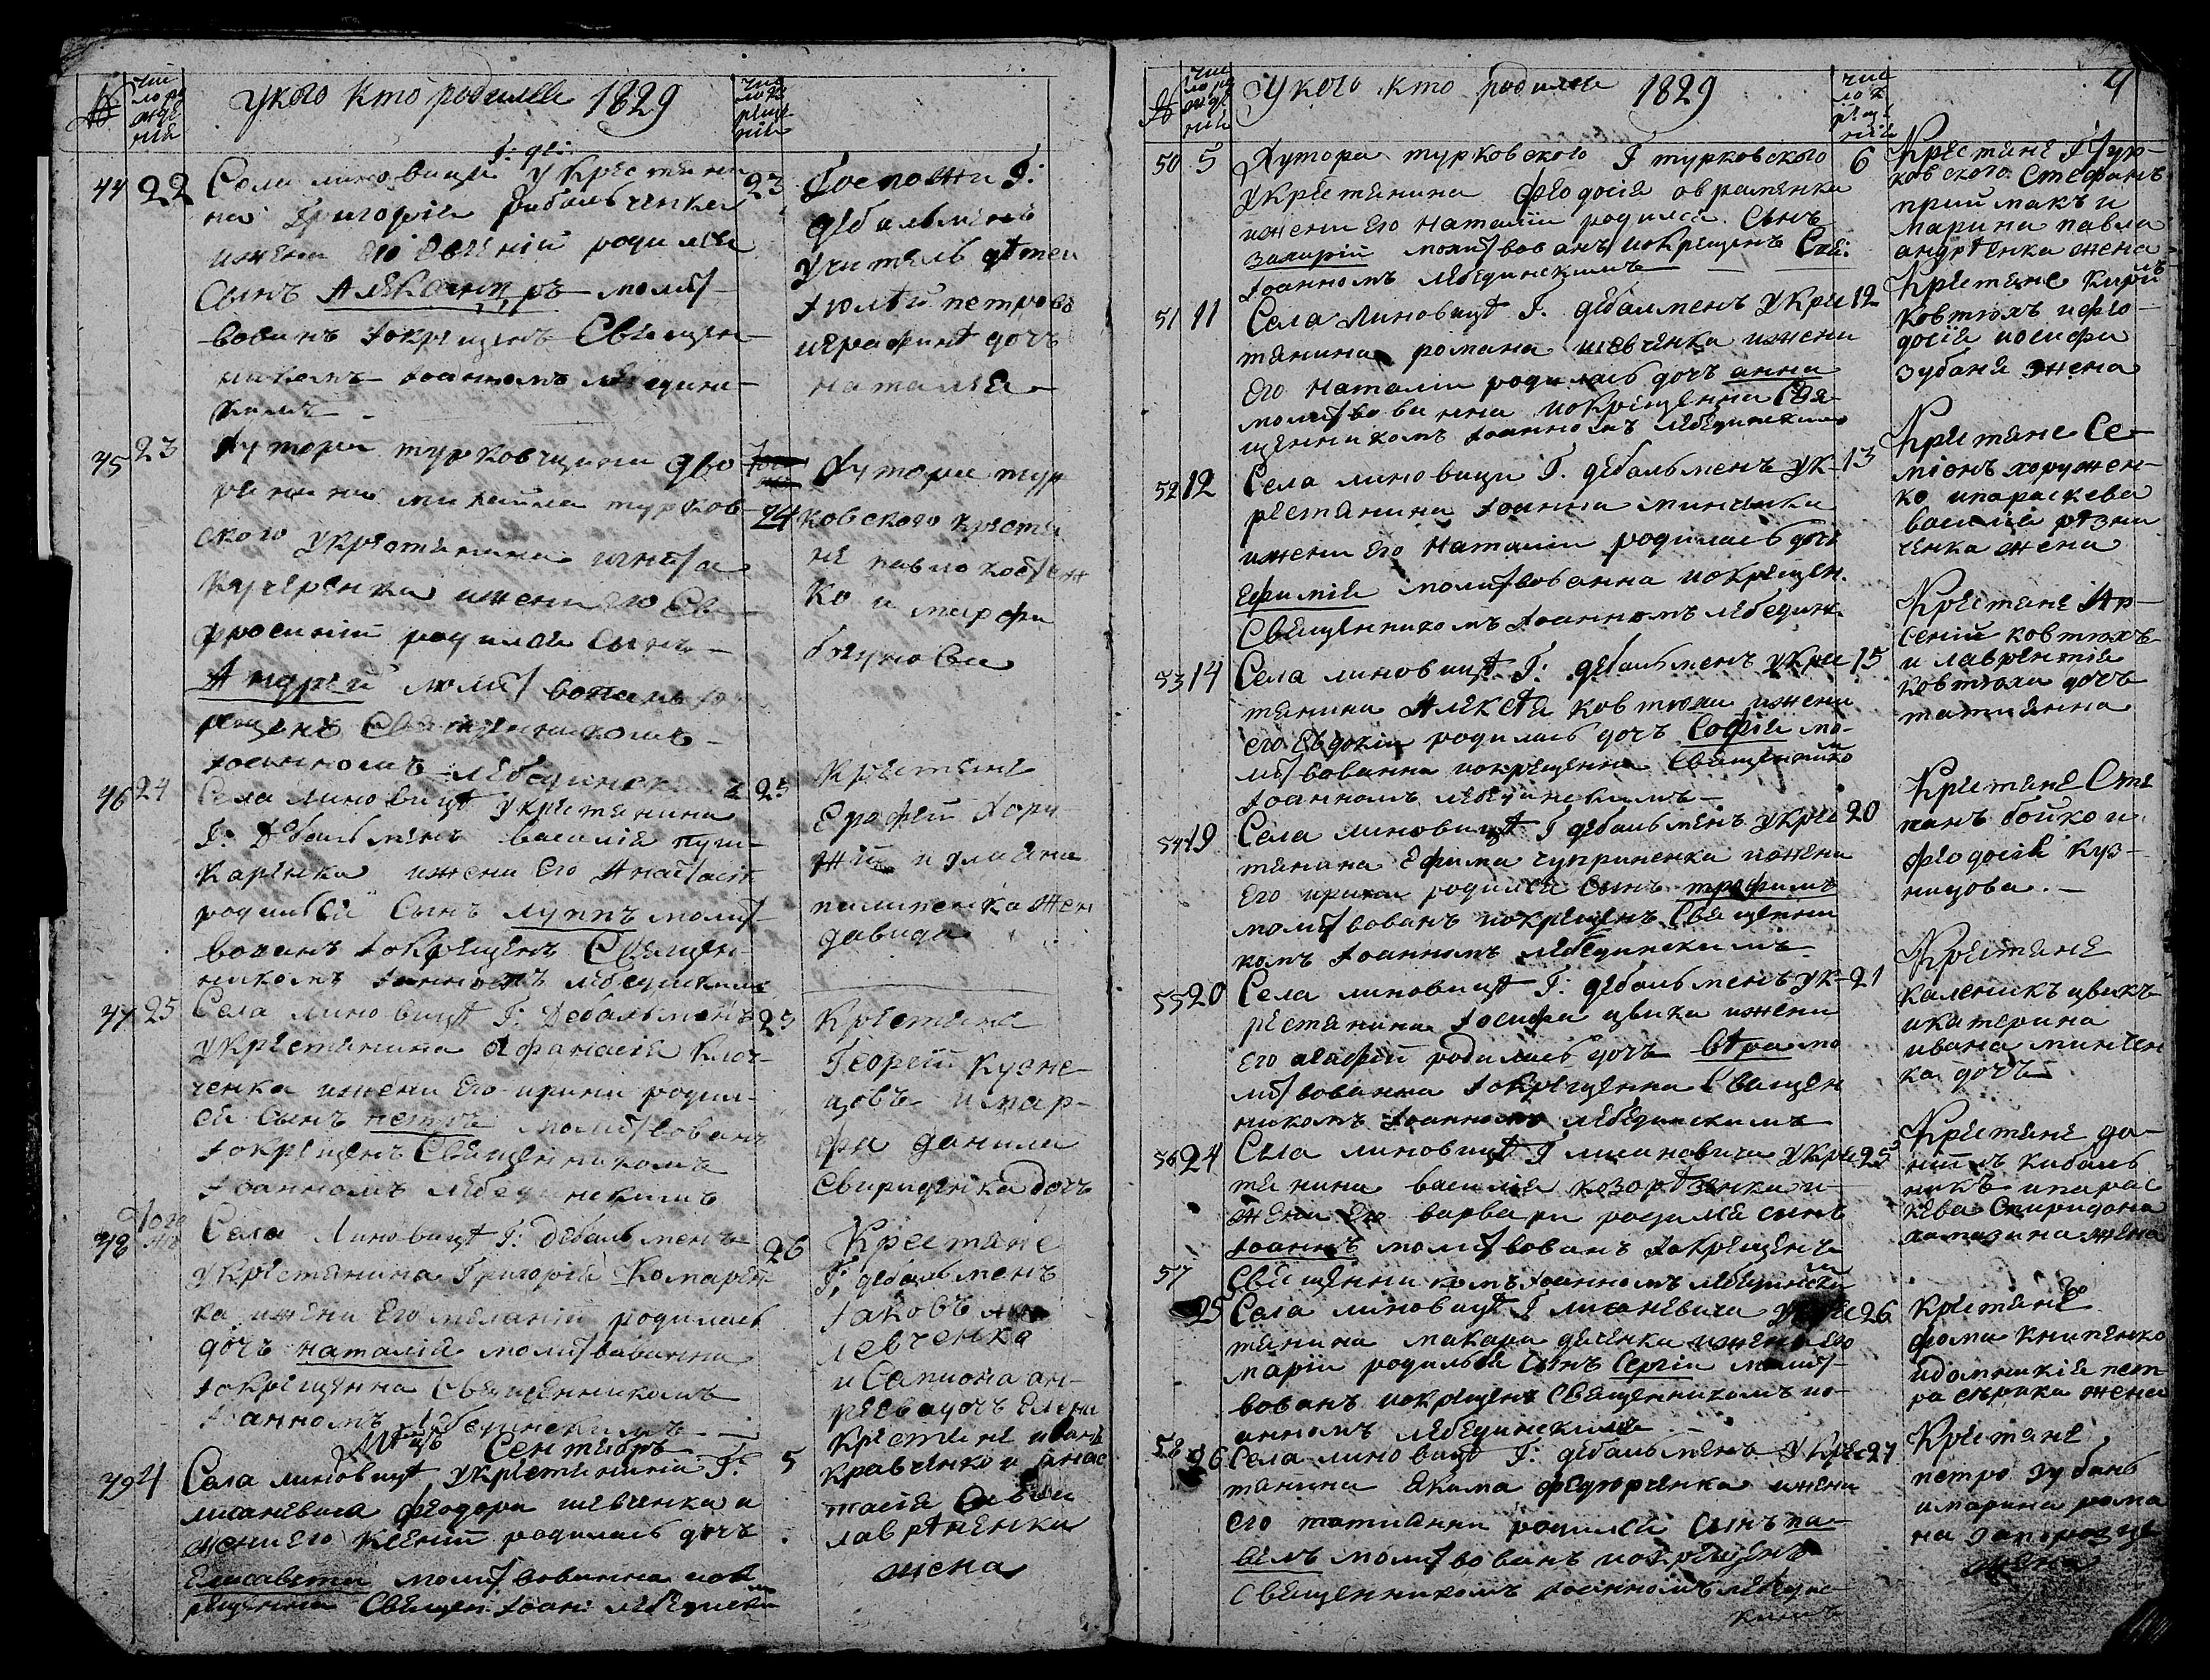 №
чис
ло ро
жде
нія
у кого кто родился 1829
чис
ло к
реще
нія
44 22
Села линовици у крестяни
на Григорія рибальченка
и жени его родился
сынъ Александръ молит
вованъ и крещенъ Священ
никомъ Іоанномъ лебедин
кимъ
23
Госпожи Г:
дебальменъ
учитель детей
петровъ
дочь
наталія
45 23
хутора турковщини дво
ренина михаила турков
ского у крестянина
кучеренка и жени его Ев
фросиніи родился сынъ
Андрей молитвованъ
рещенъ Священникомъ
Іоанномъ лебединск
24
хутора тур
ковского крестя
не павло
ко и марфа
46 24
Села линовицѣ у крестянина
Г: Дебальменъ василія пуш
каренка и жени его Анастасіи
родился сынъ луппъ молит
вованъ и крещенъ Священ
никомъ Іоанномъ лебединским
25
Крестяне
Ерофей хору
жій и улияна
пилипенка жен
давида
47 25
Села линовицѣ Г: Дебальменъ
у крестянина Афанасія клоч
ченка и жени его ирини родил
ся сынъ петръ молитвованъ
и крещенъ Священникомъ
Іоанномъ лебединскимъ
25
Крестяне
Георгій кузне
цовъ и мар
фа данила
свириденка дочь
48 того
жъ
Села Линовицѣ Г: дебальменъ
у крестянина Григорія Комарен
ка и жени его меланіи родилась
дочь наталія молитвованна
и крещенна Священникомъ
Іоанномъ лебединскимъ
26
Крестяне
Г: дебальменъ
Іаковъ
левченка
и Сапиона ан
реева дочь
М̃цъ Сентябръ
49 4
Села линовицѣ у крестянина Г:
лисаневича феодора шевченка и
жени его ксеніи родилась дочь
Елисавета молитвованна и к
рещенна Священ Іоан: лебединским
5
Крестяне иванъ
кравченко и анас
тасія
лавриненка
жена
№
чис
ло ро
жде
нія
У кого кто родился 1829
чис
ло к
реще
нія
50 5
Хутора турковского Г турковского
у крестянина феодосія авраменка
и жени его Наталіи родился Сынъ
захарій молитвованъ и крещенъ Свя:
Іоанномъ лебединскимъ
6
Крестяне Г Тур
ковского Стефанъ
приймакъ и
марина павла
андреенка жена
51 11
Села Линовицѣ Г. дебалменъ у кре
тянина романа шевченка и жени
его Наталіи родилась дочь анна
молитвованна и крещенна Свя
щенникомъ Іоанномъ лебединским
12
Крестяне Кирилъ
ковтюхъ и фео
досія иосифа
зубаня жена
52 12
Села линовици Г. дебальменъ у к
рестянина Іоанна минченка
и жени его Наталіи родилась дочь
Ефимія молитвованна и крещен.
Священникомъ Іоанномъ лебедин.
13
Крестяне Се
міонъ хоружен
ко и параскева
василія резни
ченка жена
53 14
Села линовицѣ Г: дебальменъ у кре
тянина Алексѣя ковтюха и жени
его Евдокіи родилась дочь Софія мо
литвованна и крещенна Священнико
Іоанномъ лебединскимъ
15
Крестяне Ар
сеній ковтюхъ
и лаврентія
ковтюха дочь
татиянна
54 19
Села линовицѣ Г дебальменъ у кре
тянина Ефима чуприненка и жени
его ирини родился сынъ трофимъ
молитвованъ и крещенъ Священни
комъ Іоанномъ лебединскимъ
20
Крестяне Сте
панъ бойко и
феодосія куз
нецова.
55 20
Села линовицѣ Г: дебальменъ у к
рестянина Іосифа цвика и жени
его агафіи родилась дочь вѣра мо
литвованна и крещенна Священ
никомъ Іоанномъ лебединскимъ
21
Крестяне
каленикъ цвикъ
и катерина
ивана минчен
ка дочь
56 24
Села линовицѣ Г лисаневича у кре
тянина василія козорѣзенка и
жени его варвари родился сынъ
Іоаннъ молитвованъ и крещенъ
Священникомъ Іоанномъ лебединским
25
Крестяне да
ніилъ кибаль
никъ и парас
кева Спиридона
жена
57 25
Села линовицѣ Г лисаневича у кре
тянина макара деченка и жени его
маріи родился сынъ Сергій молит
вованъ и крещенъ Священникомъ Іо
анномъ лебединскимъ
26
Крестяне
фома книпенко
и домникія пет
ра сѣрика жена
58 26
Села линовицѣ Г: дебальменъ у крес
тянина Якима федорченка и жени
его татианни родился сынъ па
велъ молитвованъ и крещенъ
Священникомъ Іоанномъ лебедине
кимъ
27
Крестяне
петро зубань
и марина рома
на запорозце
жена